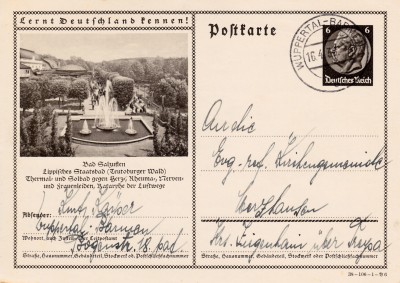 Lernt Deutschland kennen!
Postkarte
WUPPERTAL-BA
16.4
6 6
Deutsches Reich
An die
Evg.-ref. Kirchengemeinde
Bad Salzuflen
Lippisches Staatsbad (Teutoburger Wald)
Thermal- und Solbad gegen Herz-, Rheuma-, Nerven-
und Frauenleiden, Katarrhe der Luftwege
Absender:
Wuppertal-Barmen
Wohnort, auch Zustell- oder Leitpostamt
18
Straße, Hausnummer, Gebäudeteil, Stockwerk oder Postschließfachnummer
über
Straße, Hausnummer, Gebäudeteil, Stockwerk oder Postschließfachnummer